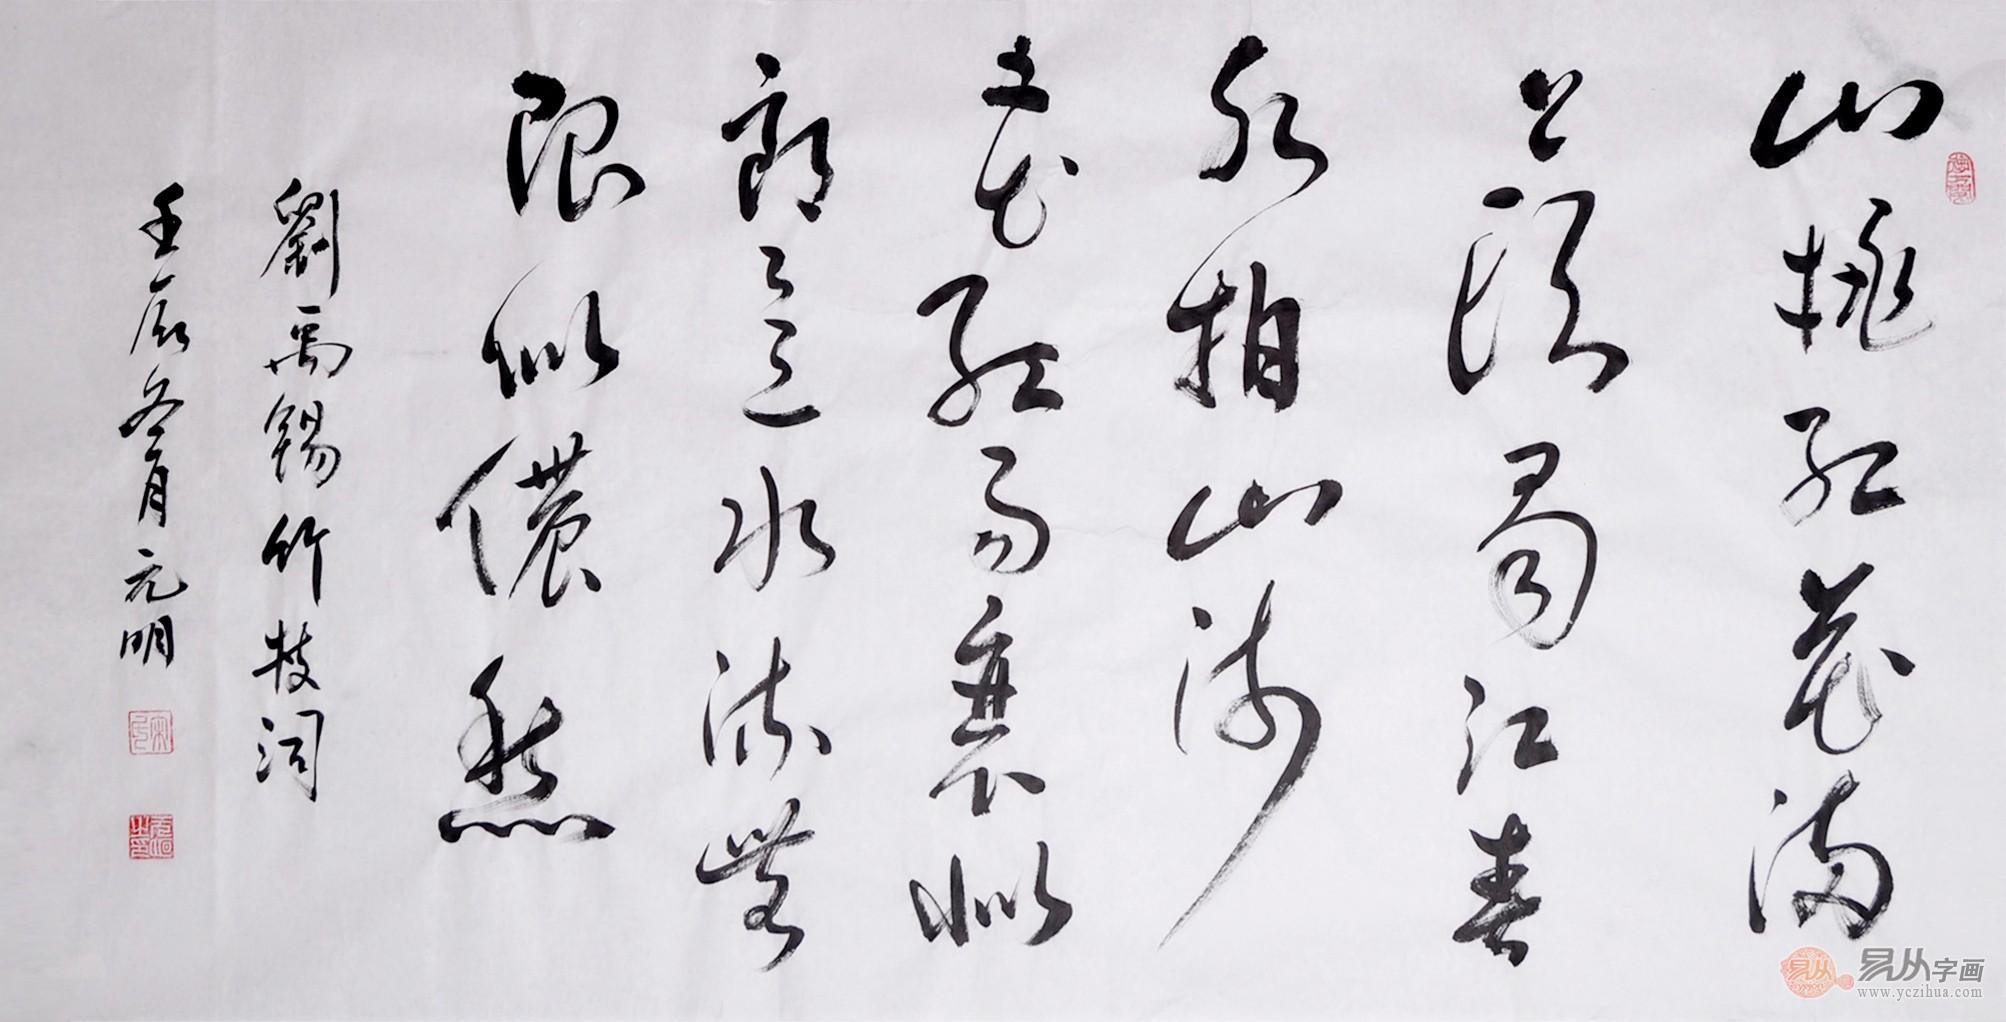 山桃紅花滿
上頭蜀江春
水拍山流
花紅易衰似
郎意水流無
限似儂愁
劉禹錫竹枝词
壬辰冬月元明
易从
易从字画
www.yczihua.com